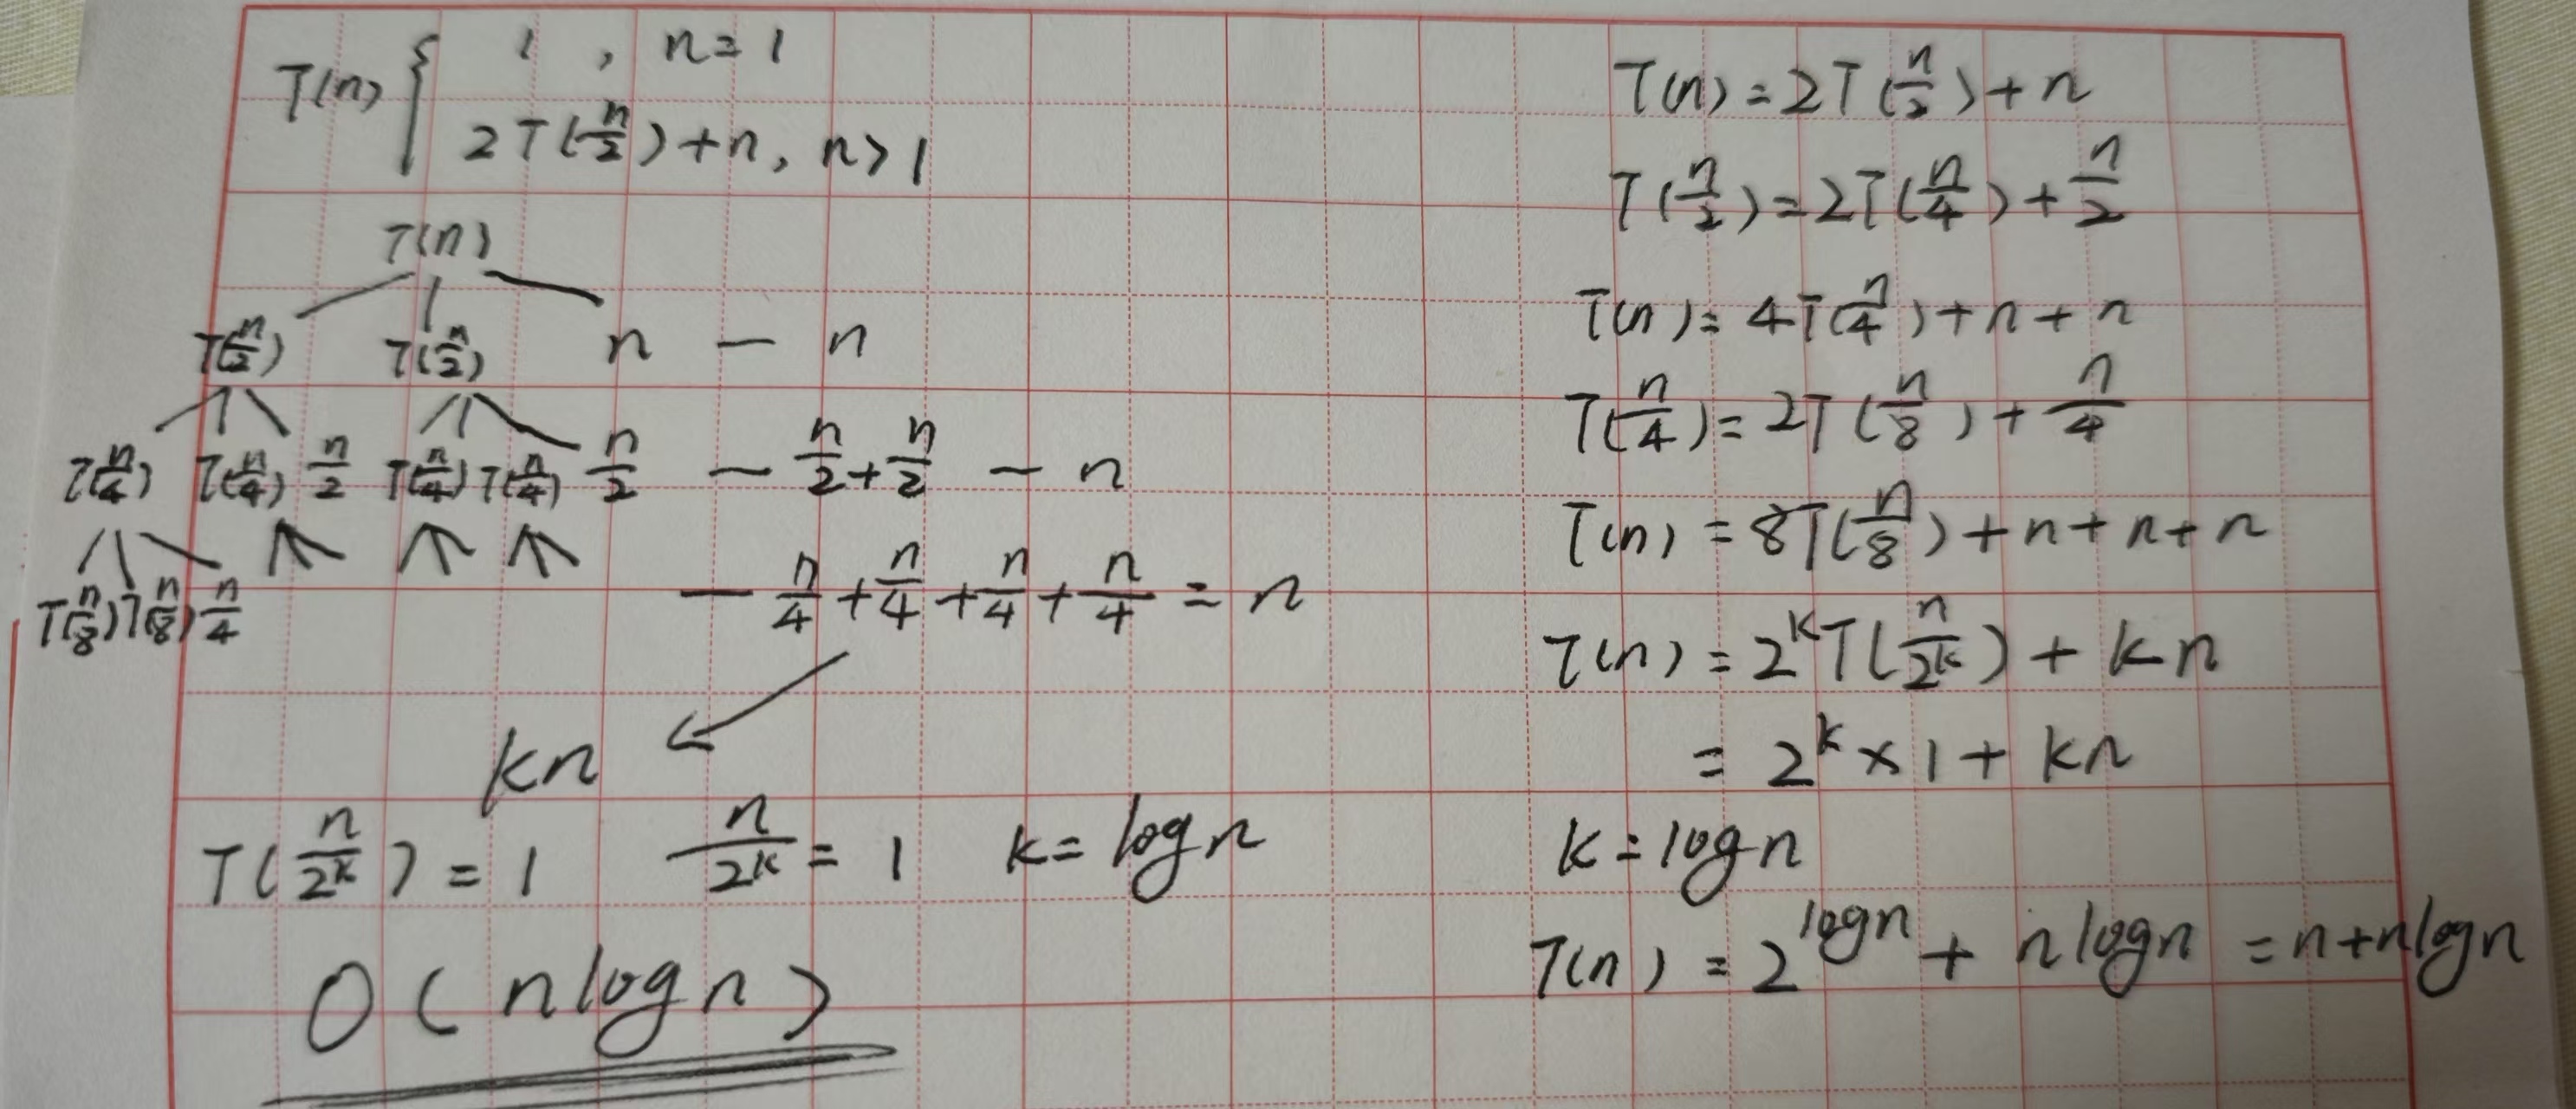 T(n) { 1 , n=1
2T(n/2)+n, n>1
T(n)
T(n/2) T(n/2) n — n
T(n/4) T(n/4) n/2 T(n/4) T(n/4) n/2 — n/2+n/2 — n
T(n/8) T(n/8) n/4 — n/4+n/4+n/4+n/4=n
kn
T(n/2^k)=1 n/2^k=1 k=logn
O(nlogn)
T(n)=2T(n/2)+n
T(n/2)=2T(n/4)+n/2
T(n)=4T(n/4)+n+n
T(n/4)=2T(n/8)+n/4
T(n)=8T(n/8)+n+n+n
T(n)=2^kT(n/2^k)+kn
=2^k×1+kn
k=logn
T(n)=2^logn+nlogn=n+nlogn